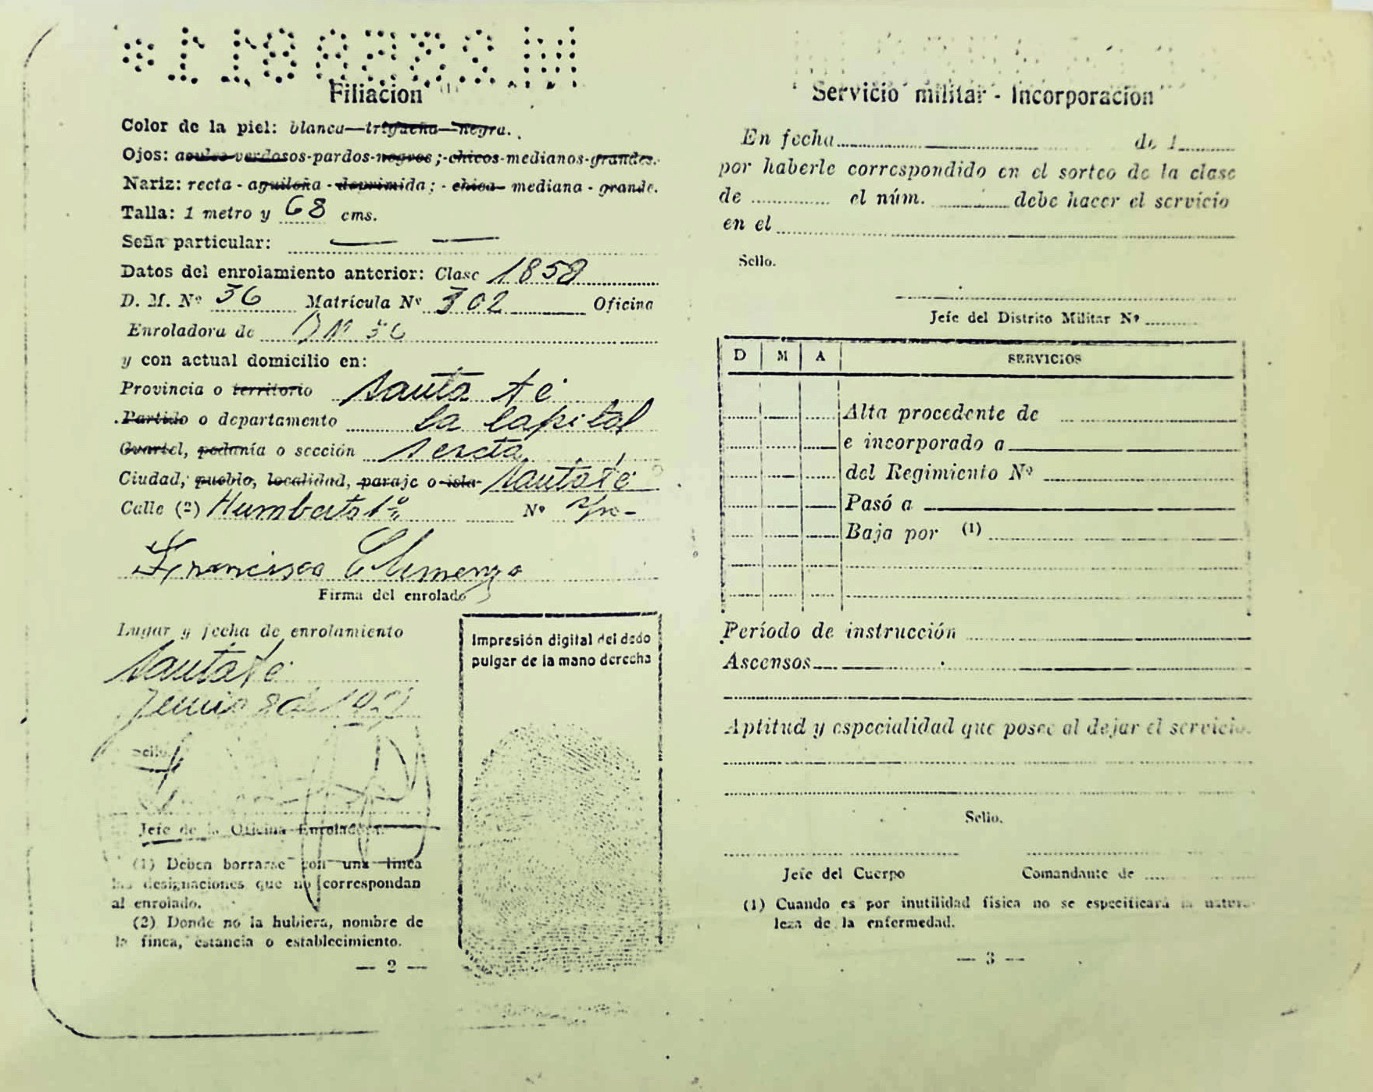 Filiacion
Color de la piel: blanca—trigueña—negra.
Ojos: azules-verdosos-pardos-negros; -chicos-medianos-grandes.
Nariz: recta - aguileña - deprimida; - chica - mediana - grande.
Talla: 1 metro y 68 cms.
Seña particular: — —
Datos del enrolamiento anterior: Clase 1858
D. M. Nº 36 Matrícula Nº 302 Oficina
Enroladora de DM 36
y con actual domicilio en:
Provincia o territorio Santa Fé
Partido o departamento La Capital
Cuartel, pedanía o sección Sexta
Ciudad, pueblo, localidad, paraje o isla Santa Fé
Calle (2) Humberto 1º Nº s/n-
Francisco Clemenzo
Firma del enrolado
Lugar y fecha de enrolamiento
Santa Fé
Junio 8 de
Sello.
Jefe de la Oficina Enroladora.
(1) Deben borrarse con una línea
las designaciones que no correspondan
al enrolado.
(2) Donde no la hubiera, nombre de
la finca, estancia o establecimiento.
Impresión digital del dedo
pulgar de la mano derecha
— 2 —
Servicio militar - Incorporación
En fecha de 1
por haberle correspondido en el sorteo de la clase
de el núm. debe hacer el servicio
en el
Sello.
Jefe del Distrito Militar Nº
D M A SERVICIOS
Alta procedente de
e incorporado a
del Regimiento Nº
Pasó a
Baja por (1)
Período de instrucción
Ascensos
Aptitud y especialidad que posee al dejar el servicio.
Sello.
Jefe del Cuerpo Comandante de
(1) Cuando es por inutilidad física no se especificará la natura-
leza de la enfermedad.
— 3 —